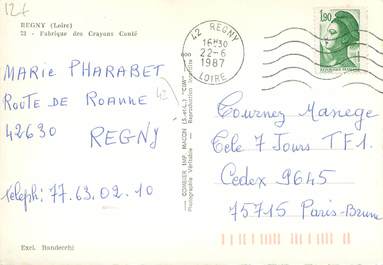 12€
REGNY (Loire)
73 - Fabrique des Crayons Conté
MARIE PHARABET
ROUTE DE ROANNE
42630
REGNY
Téleph: 77.63.02.10
Excl. Bandecchi
COMBIER IMP. MACON (S.-et-L.) "CIM"
Photographie Véritable
Reproduction interdite
42 REGNY
16H30
22-6
1987
LOIRE
1,90
Tournez Manège
Télé 7 Jours TF1.
Cedex 9645
75715 Paris-Brune